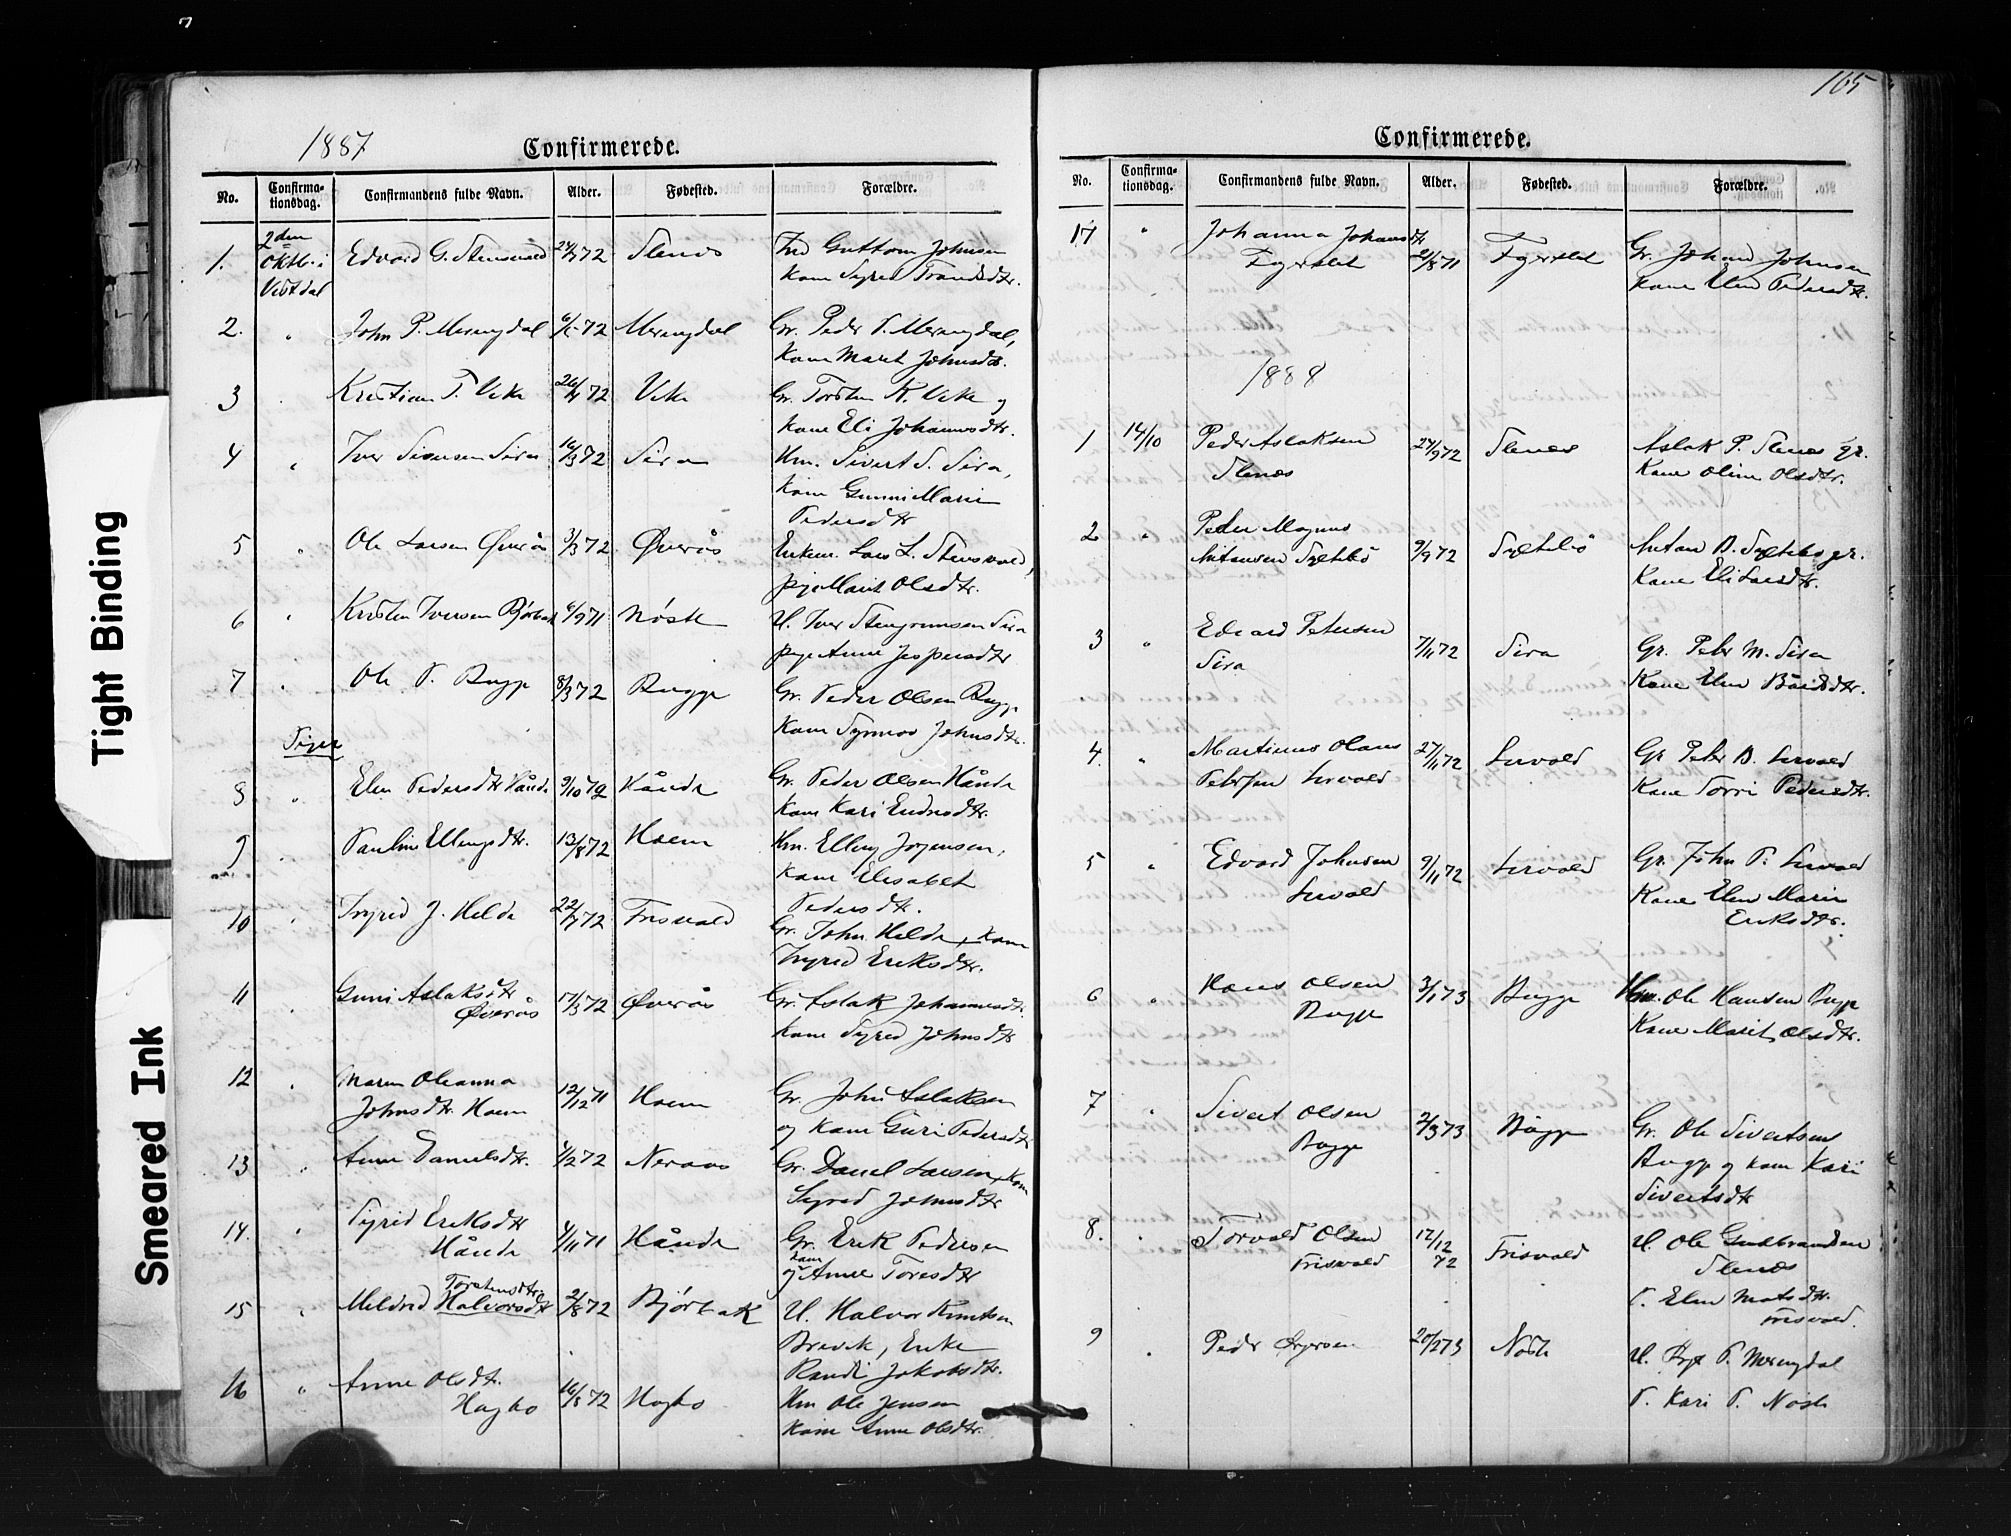 165
1887
Confirmerede.
No. Confirmationsdag. Confirmandens fulde Navn. Alder. Fødested. Forældre.
1. 2den Oktb. i Vistdal Edvard G. Stensvold 72 Slenes Guttorm Johnsen
Kone Sigrid Trondsdtr.
2. " John P. Merengdal 72 Merengdal Gr. Peder P. Merengdal,
Kone Marit Johnsdtr.
3 " Kristian T. Vike 72 Vike Gr. Torsten K. Vike og
Kone Eli Johannesdtr.
4 " Iver Sivertsen Sira 16/3 72 Sira Hm. Sivert S. Sira,
Kone Gunni Marie
Pedersdtr
5 " Ole Larsen Øverås 3/3 72 Øverås Enkem. Lars L. Stensvold,
pige Marit Olsdtr.
6 " Kristen Iversen Bjørbak 6/9 71 Nøste U. Iver Stengrimsen Sira
pige Anne Jespersdtr
7 " Ole P. Bugge 8/3 72 Bugge Gr. Peder Olsen Bugge
Kone Synnøv Johnsdtr.
Piger
8 " Elen Pedersdtr Hånde 9/10 72 Hånde Gr. Peder Olsen Hånde
Kone Kari Endresdtr.
9 " Pauline Ellingsdtr. 13/8 72 Hoem Hm. Elling Jørgensen,
Kone Elisabet
Pedersdtr.
10 " Ingrid J. Helde 22/7 72 Frisvold Gr. John Helde, Kone
Ingrid Eriksdtr.
11 " Guni Aslaksdtr
Øverås 17/3 72 Øverås Gr. Aslak Johannesdtr.
Kone Sigrid Johnsdtr
12 " Maren Oleanna
Johnsdtr. Hoem 12/12 71 Hoem Gr. John Aslaksen
og Kone Guri Pedersdtr
13 " Anne Danielsdtr. 4/2 72 Neraas Gr. Daniel Larsen, Kone
Sigrid Johnsdtr
14. " Sigrid Eriksdtr
Hånde 4/11 71 Hånde Gr. Erik Pedersen
og Kone Anne Toresdtr
15 " Mildrid Torstensdtr.
Halvorsdtr 2/8 72 Bjørbak U. Halvor Knutsen
Brevik, Enke
Randi Jakobsdtr.
16 " Anne Olsdtr.
Hagbø 16/8 72 Hagbø Hm Ole Jensen
Kone Anne Olsdtr.
Confirmerede.
No. Confirmationsdag. Confirmandens fulde Navn. Alder. Fødested. Forældre.
17 " Johanna Johansdtr
21/8 71 Gr. Johan Johnsen
Kone Elen Pedersdtr.
1888
1 14/10 Peder Aslaksen
Slenes 24/9 72 Slenes Aslak P. Slenes gr.
Kone Oline Olsdtr.
2 " Peder Magnus
Antonsen Sætebø 9/9 72 Sætebø Anton B. Sætebø gr.
Kone Eli Larsdtr.
3 " Edvard Petersen
Sira 7/11 72 Sira Gr. Peter M. Sira
Kone Elen Bårdsdtr.
4. " Martinus Olaus
Petersen Lervold 27/11 72 Lervold Gr Peter B. Lervold
Kone Torri Pedersdtr.
5 " Edvard Johnsen
Lervold 9/11 72 Lervold Gr. John P. Lervold
Kone Elen Marie
Eriksdtr.
6 " Hans Olsen
Bugge 3/1 73 Bugge Hm. Ole Hansen Bugge
Kone Marit Olsdtr.
7 " Sivert Olsen
Bugge 2/3 73 Bugge Gr. Ole Sivertsen
Bugge og Kone Kari
Sivertsdtr
8. " Torvald Olsen
Frisvold 12/12 72 Frisvold U. Ole Gudbrandsen
Slenes
P. Elen Matsdtr.
Frisvold.
9 " Peder 20/2 73 Nøste U. P. Merengdal
P. Kari P. Nøste
Tight Binding
Smeared Ink